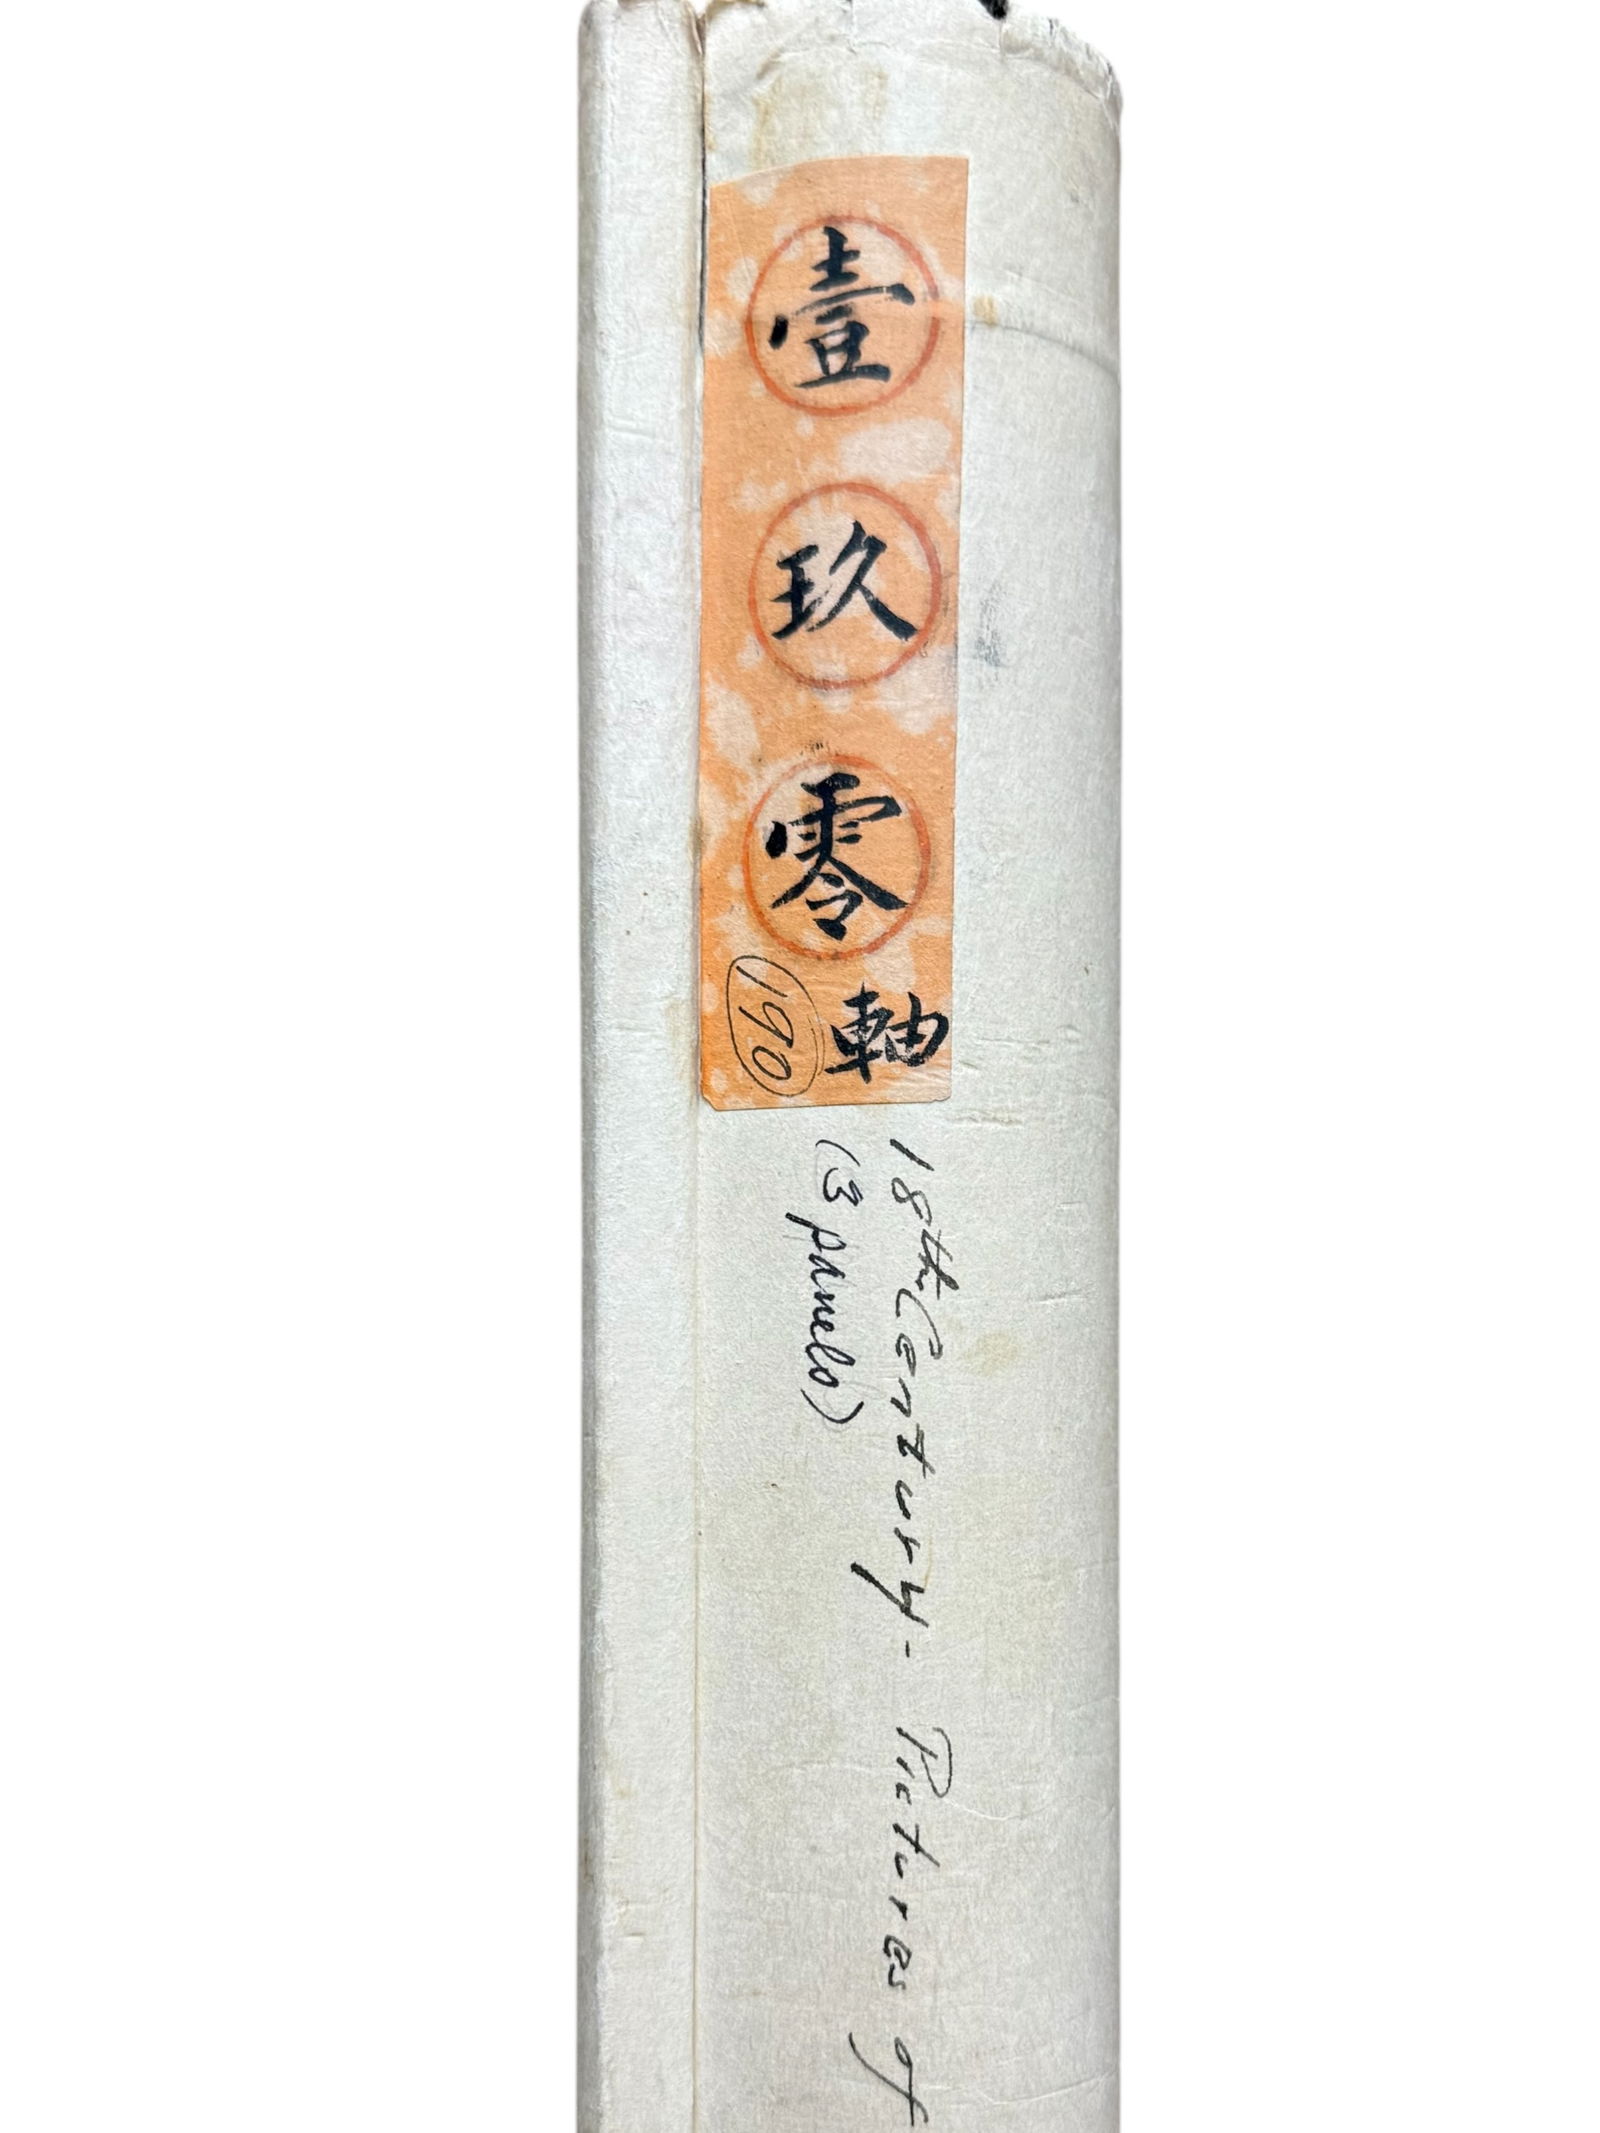 壹玖零軸
190
18th Century - Pictures of
(3 panels)